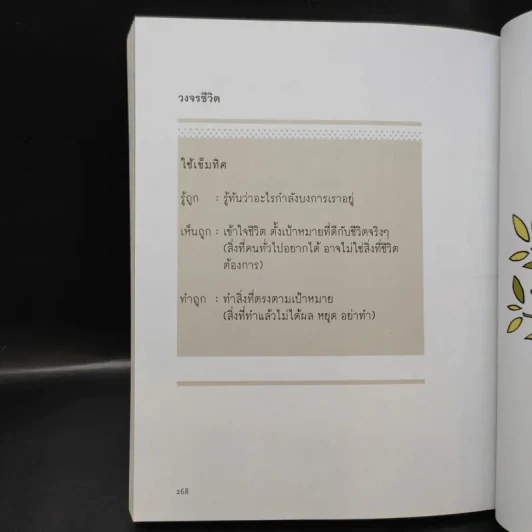 วงจรชีวิต
ใช้เข็มทิศ
รู้ถูก : รู้ทันว่าอะไรกำลังบงการเราอยู่
เห็นถูก : เข้าใจชีวิต ตั้งเป้าหมายที่ดีกับชีวิตจริงๆ
(สิ่งที่คนทั่วไปอยากได้ อาจไม่ใช่สิ่งที่ชีวิต
ต้องการ)
ทำถูก : ทำสิ่งที่ตรงตามเป้าหมาย
(สิ่งที่ทำแล้วไม่ได้ผล หยุด อย่าทำ)
268